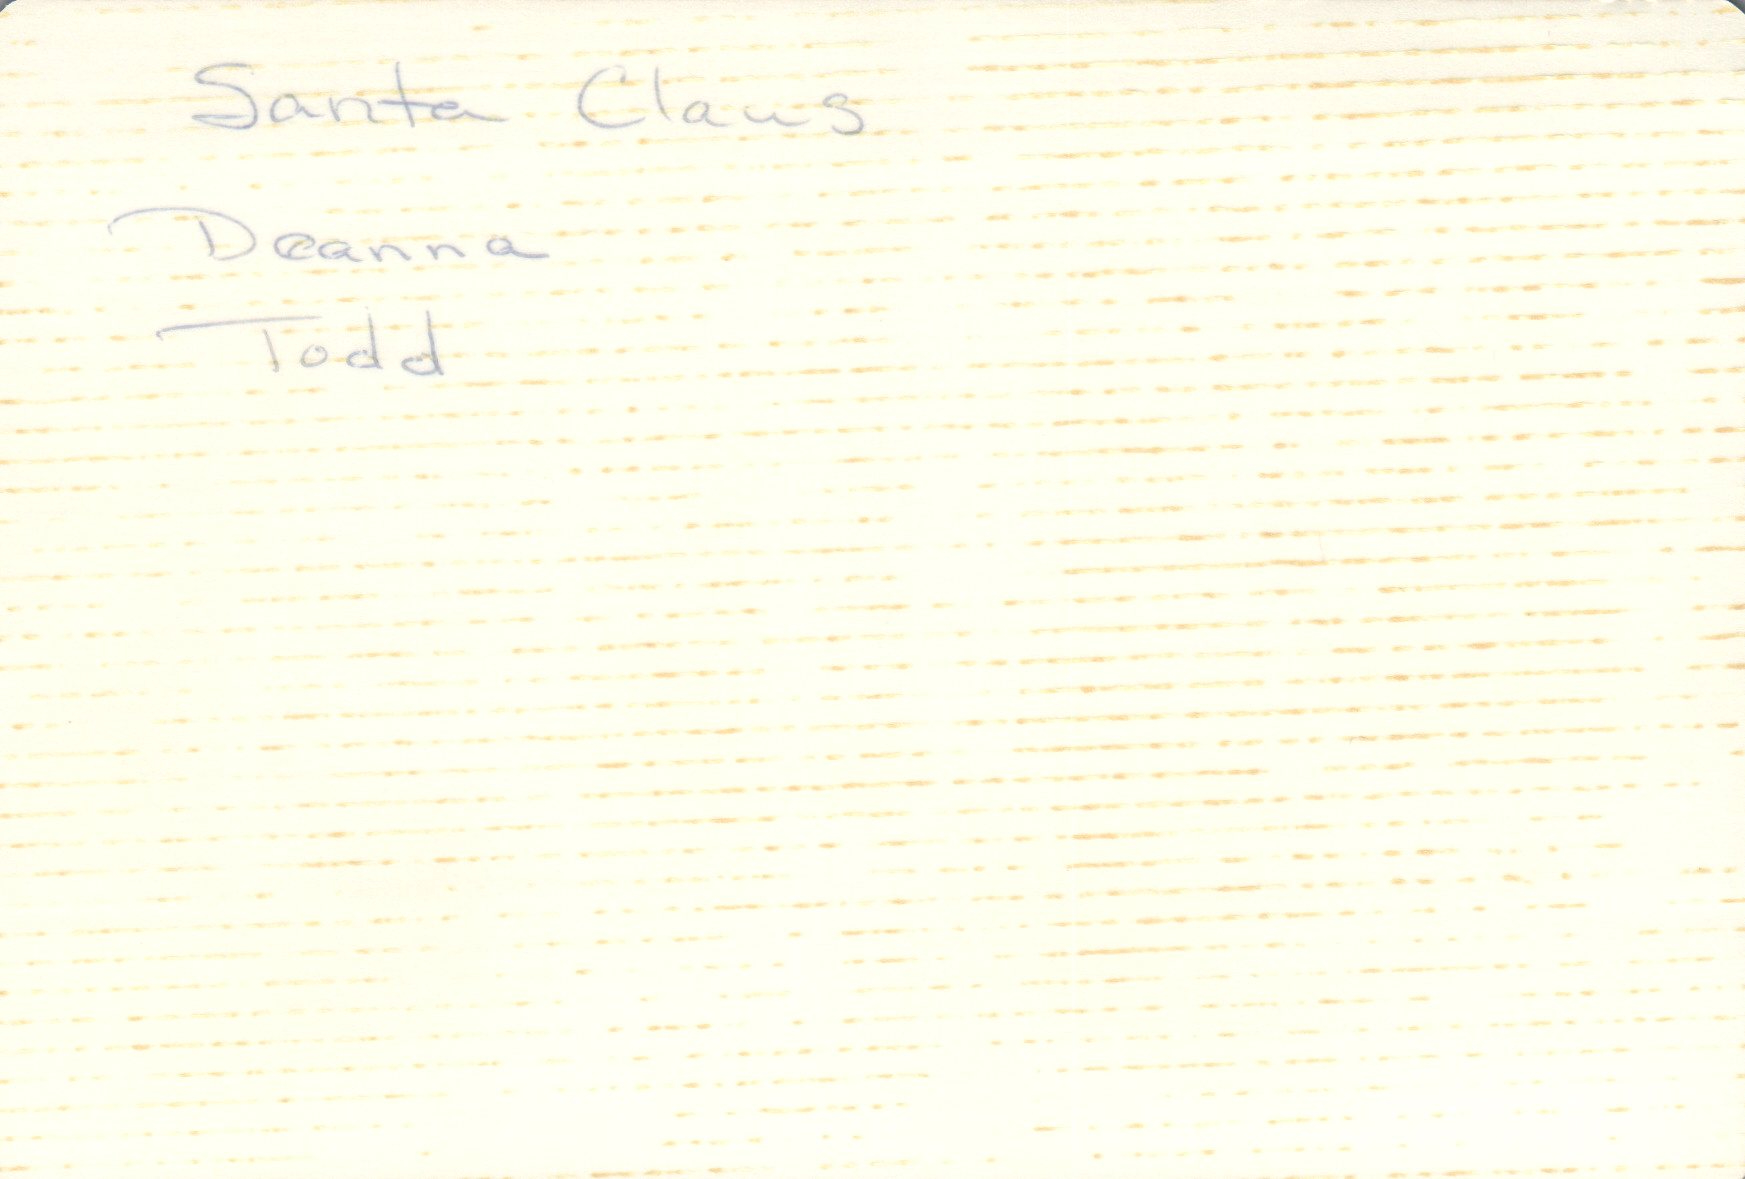 Santa Claus
Deanna
Todd